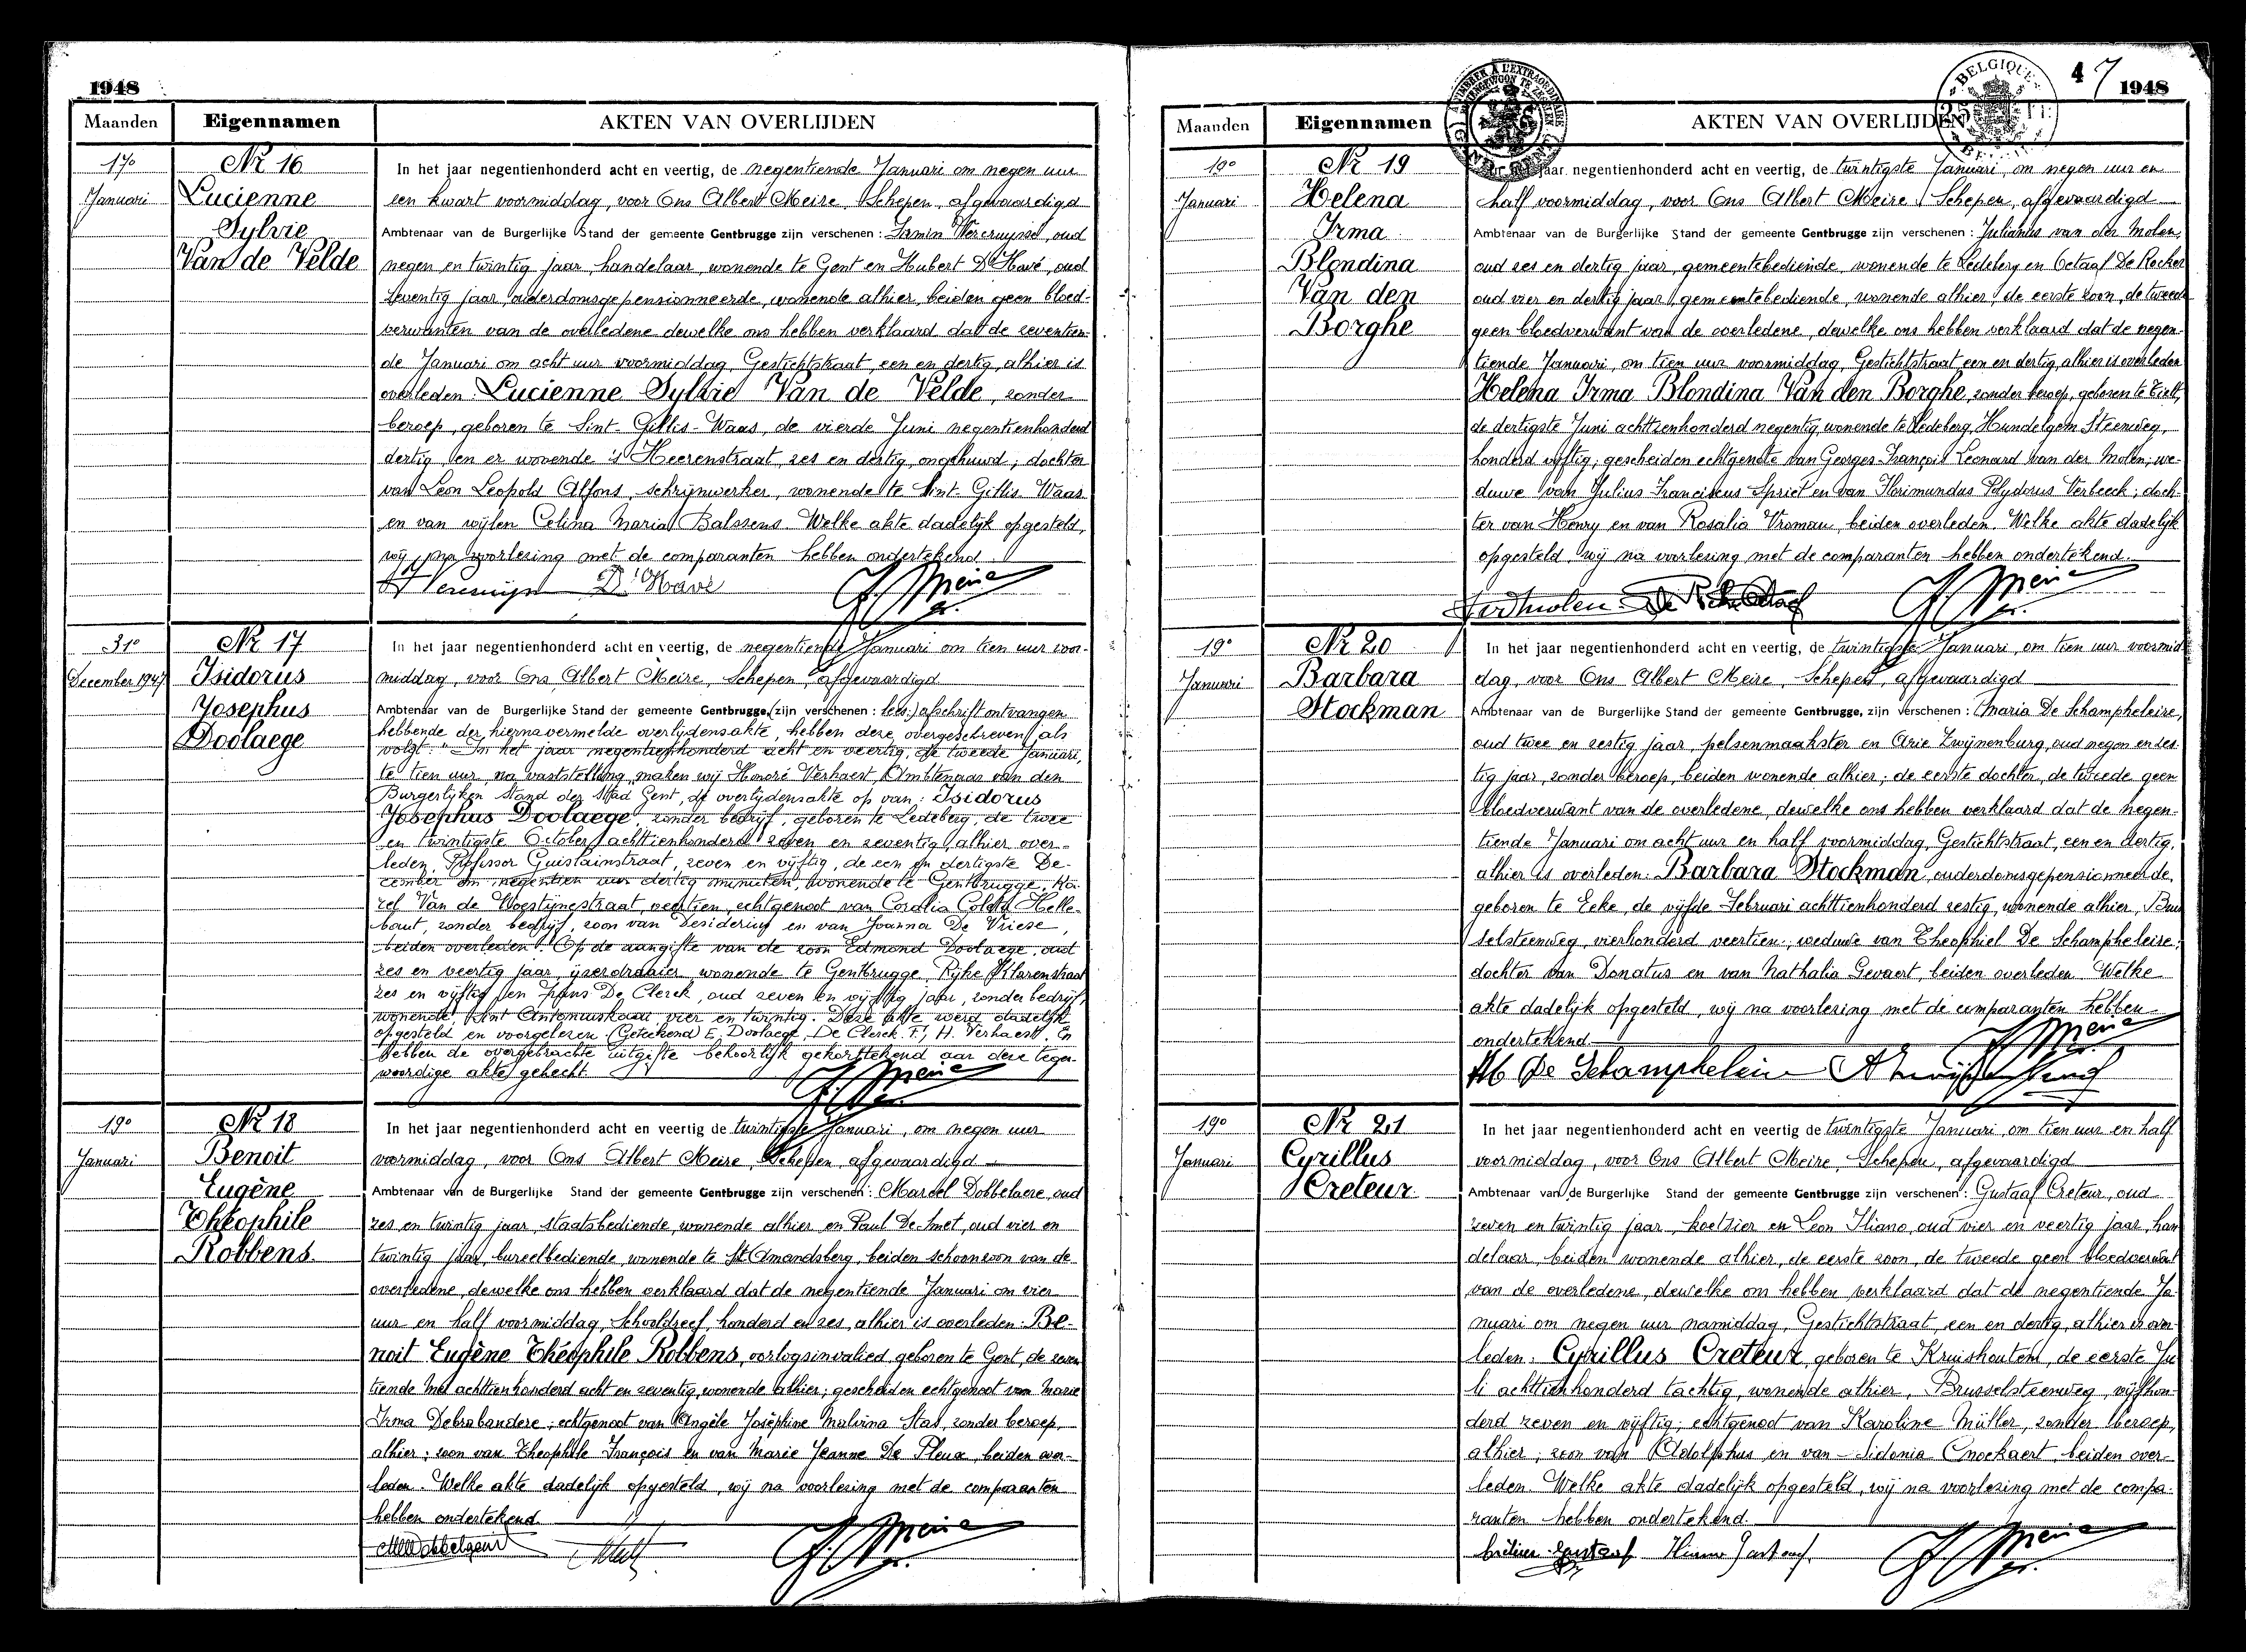 1948
Maanden Eigennamen AKTEN VAN OVERLIJDEN
17e Januari
Nr 16
Lucienne
Sylvie
Van de Velde
In het jaar negentienhonderd acht en veertig, de negentiende Januari om negen uur
een kwart voormiddag, voor Ons Albert Meire, Schepen, afgevaardigd
Ambtenaar van de Burgerlijke Stand der gemeente Gentbrugge zijn verschenen : Irmin Vercruysse, oud
negen en twintig jaar, handelaar, wonende te Gent en Hubert D'Havé, oud
zeventig jaar, ouderdomsgepensionneerde, wonende alhier, beiden geen bloed-
verwanten van de overledene dewelke ons hebben verklaard dat de zeventien-
de Januari om acht uur voormiddag, Gestichtstraat, een en dertig, alhier is
overleden: Lucienne Sylvie Van de Velde, zonder
beroep, geboren te Sint-Gillis-Waas, de vierde Juni negentienhonderd
dertig, en er wonende is Heerenstraat, zes en dertig, ongehuwd; dochter
van Leon Leopold Alfons, schrijnwerker, wonende te Sint-Gillis-Waas
en van wijlen Celina Maria Balssens. Welke akte dadelijk opgesteld,
wij na voorlezing met de comparanten hebben ondertekend.
D'Havé A. Meire
31e December 1947
Nr 17
Isidorus
Josephus
Doolaege
In het jaar negentienhonderd acht en veertig, de negentiende Januari om tien uur voor-
middag, voor Ons Albert Meire, Schepen, afgevaardigd
Ambtenaar van de Burgerlijke Stand der gemeente Gentbrugge, (zijn verschenen : lees:) afschrift ontvangen
hebbende der hiernavermelde overlijdensakte, hebben deze overgeschreven als
volgt: "In het jaar negentienhonderd acht en veertig, de tweede Januari,
te tien uur, na vaststelling, maken wij Honoré Verhaert, Ambtenaar van den
Burgerlijken Stand der Stad Gent, de overlijdensakte op van: Isidorus
Josephus Doolaege, zonder bedrijf, geboren te Ledeberg, de twee
en twintigste October achttienhonderd zeven en zeventig, alhier over-
leden, Professor Guislainstraat, zeven en vijftig, de een en dertigste De-
cember om negentien uur dertig minuten, wonende te Gentbrugge, Ka-
rel Van de Woestijnestraat, veertien, echtgenoot van Coralia Coleta Helle-
baut, zonder bedrijf, zoon van Desiderius en van Joanna De Vriese,
beiden overleden. Op de aangifte van de zoon Edmond Doolaege, oud
zes en veertig jaar, ijzerdraaier, wonende te Gentbrugge, Rijke Klarenstraat
zes en vijftig en Frans De Clerck, oud zeven en vijftig jaar, zonder bedrijf,
wonende, Sint Antoniuskaai vier en twintig. Deze akte werd dadelijk
opgesteld en voorgelezen. (Getekend) E. Doolaege, De Clerck F., H. Verhaert. En
hebben de overgebrachte uitgifte behoorlijk gekorttekend aan deze tegen-
woordige akte gehecht.
A. Meire
19e Januari
Nr 18
Benoit
Eugène
Théophile
Robbens.
In het jaar negentienhonderd acht en veertig de twintigste Januari, om negen uur
voormiddag, voor Ons Albert Meire, Schepen, afgevaardigd
Ambtenaar van de Burgerlijke Stand der gemeente Gentbrugge zijn verschenen : Marcel Dobbelaere, oud
zes en twintig jaar, staatsbediende, wonende alhier en Paul De Smet, oud vier en
twintig jaar, bureelbediende, wonende te St Amandsberg, beiden schoonzoon van de
overledene, dewelke ons hebben verklaard dat de negentiende Januari om vier
uur en half voormiddag, Schooldreef, honderd en zes, alhier is overleden: Be-
noit Eugène Théophile Robbens, oorlogsinvalied, geboren te Gent, de zeven
tiende Mei achttienhonderd acht en zeventig, wonende alhier; gescheiden echtgenoot van Marie
Irma Debrabandere; echtgenoot van Angèle Joséphine Malvina Stas, zonder beroep,
alhier; zoon van Theophile François en van Marie Jeanne De Pleux, beiden over-
leden. Welke akte dadelijk opgesteld, wij na voorlezing met de comparanten
hebben ondertekend.
A. Meire
BELGIQUE
4 7 1948
Maanden Eigennamen AKTEN VAN OVERLIJDEN
19e Januari
Nr 19
Helena
Irma
Blondina
Van den
Borghe
jaar negentienhonderd acht en veertig, de twintigste Januari, om negen uur en
half voormiddag, voor Ons Albert Meire, Schepen, afgevaardigd
Ambtenaar van de Burgerlijke Stand der gemeente Gentbrugge zijn verschenen : Julianus van der Molen,
oud zes en dertig jaar, gemeentebediende, wonende te Ledeberg en Octaaf De Rocker
oud vier en dertig jaar, gemeentebediende, wonende alhier; de eerste zoon, de tweede
geen bloedverwant van de overledene, dewelke ons hebben verklaard dat de negen-
tiende Januari, om tien uur voormiddag, Gestichtstraat een en dertig, alhier is overleden
Helena Irma Blondina Van den Borghe, zonder beroep, geboren te Tielt,
de dertigste Juni achttienhonderd negentig, wonende te Ledeberg, Hundelgem Steenweg,
honderd vijftig; gescheiden echtgenote van Georges François Leonard van der Molen; we-
duwe van Julius Franciscus Spriet en van Florimundus Polydorus Verbeeck; doch-
ter van Henry en van Rosalia Vroman, beiden overleden. Welke akte dadelijk
opgesteld, wij na voorlezing met de comparanten hebben ondertekend.
A. Meire
19e Januari
Nr 20
Barbara
Stockman
In het jaar negentienhonderd acht en veertig, de twintigste Januari, om tien uur voormid-
dag, voor Ons Albert Meire, Schepen, afgevaardigd
Ambtenaar van de Burgerlijke Stand der gemeente Gentbrugge, zijn verschenen : Maria De Schampheleire,
oud twee en zestig jaar, pelsenmaakster en Arie Zwijnenburg, oud negen en zes-
tig jaar, zonder beroep, beiden wonende alhier; de eerste dochter, de tweede geen
bloedverwant van de overledene, dewelke ons hebben verklaard dat de negen-
tiende Januari om acht uur en half voormiddag, Gestichtstraat, een en dertig,
alhier is overleden: Barbara Stockman, ouderdomsgepensionneerde,
geboren te Eeke, de vijfde Februari achttienhonderd zestig, wonende alhier, Brus
selsteenweg, vierhonderd veertien; weduwe van Theophiel De Schampheleire;
dochter van Donatus en van Nathalia Gevaert, beiden overleden. Welke
akte dadelijk opgesteld, wij na voorlezing met de comparanten hebben
ondertekend.
A. Meire
M De Schampheleire
19e Januari
Nr 21
Cyrillus
Creteur.
In het jaar negentienhonderd acht en veertig de twintigste Januari, om tien uur en half
voormiddag, voor Ons Albert Meire, Schepen, afgevaardigd
Ambtenaar van de Burgerlijke Stand der gemeente Gentbrugge zijn verschenen : Gustaaf Creteur, oud
zeven en twintig jaar, koetsier en Leon Iliano, oud vier en veertig jaar, han
delaar, beiden wonende alhier, de eerste zoon, de tweede geen bloedverwant
van de overledene, dewelke ons hebben verklaard dat de negentiende Ja-
nuari om negen uur namiddag, Gestichtstraat, een en dertig, alhier is over-
leden: Cyrillus Creteur, geboren te Kruishoutem, de eerste Ju-
li achttienhonderd tachtig, wonende alhier, Brusselsteenweg, vijfhon-
derd zeven en vijftig; echtgenoot van Karoline Müller, zonder beroep,
alhier; zoon van Adolphus en van Sidonia Cnockaert, beiden over-
leden. Welke akte dadelijk opgesteld, wij na voorlezing met de compa-
ranten hebben ondertekend.
A. Meire